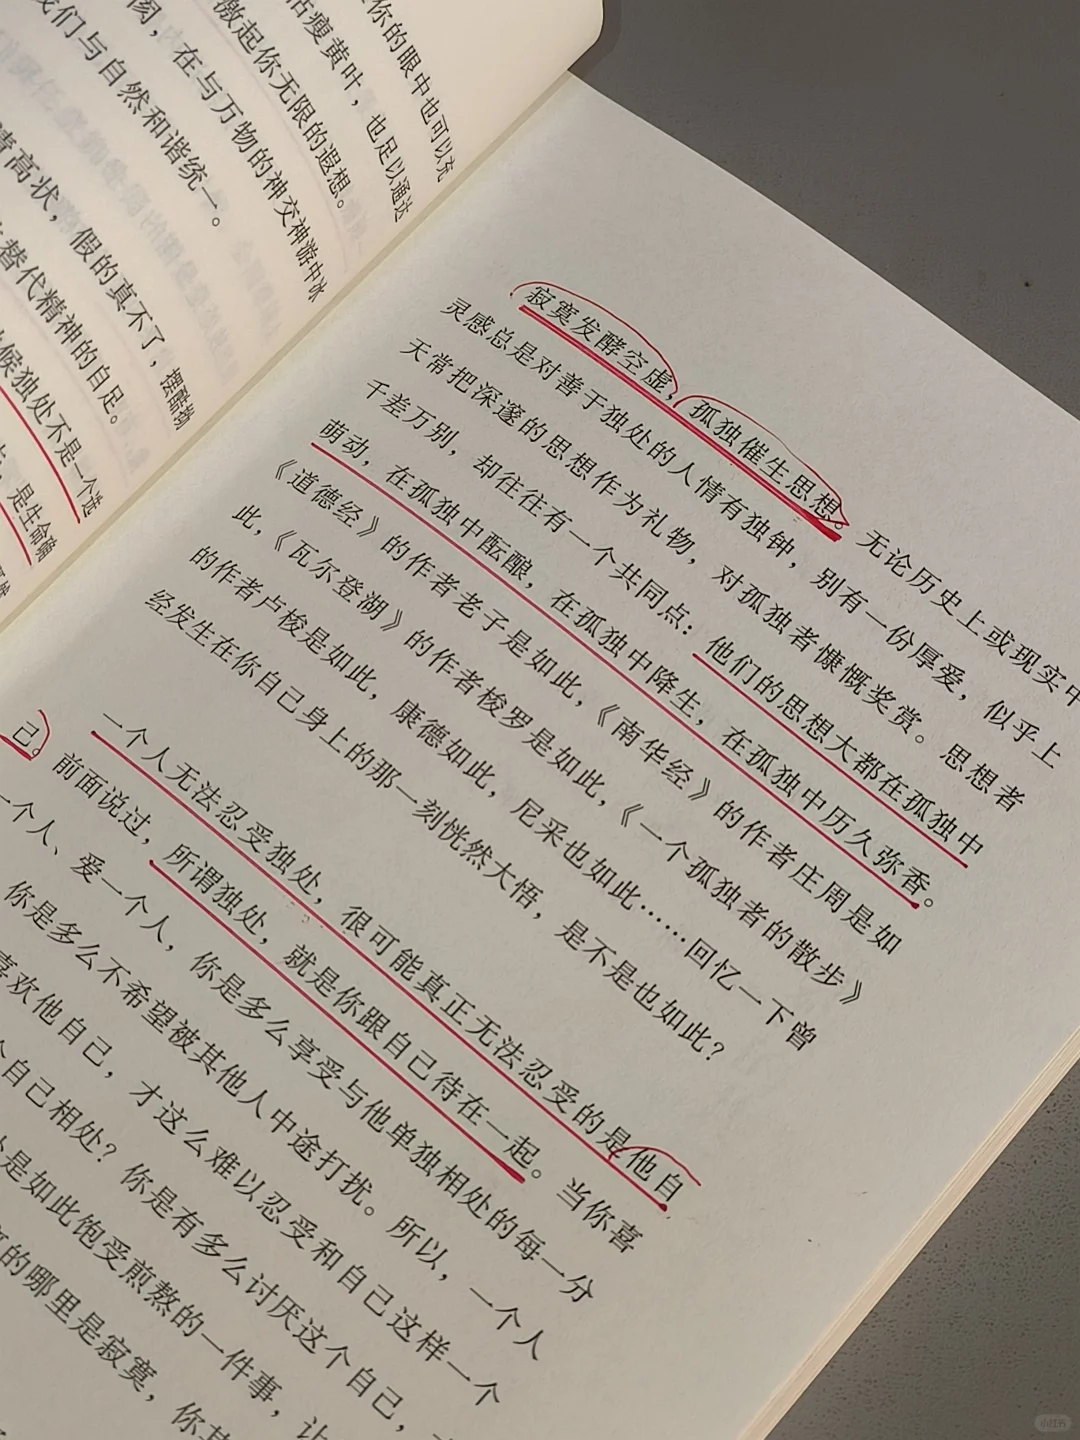 你的眼中也可以充
瘦黄叶，也足以通达
激起你无限的遐想。
，在与万物的神交神游中冰
我们与自然和谐统一。
高状，假的真不了，摆酷扮
替代精神的自足。
候独处不是一个选
，是生命确
寂寞发酵空虚，孤独催生思想。无论历史上或现实中
灵感总是对善于独处的人情有独钟，别有一份厚爱，似乎上
天常把深邃的思想作为礼物，对孤独者慷慨奖赏。思想者
千差万别，却往往有一个共同点：他们的思想大都在孤独中
萌动，在孤独中酝酿，在孤独中降生，在孤独中历久弥香。
《道德经》的作者老子是如此，《南华经》的作者庄周是如
此，《瓦尔登湖》的作者梭罗是如此，《一个孤独者的散步》
的作者卢梭是如此，康德如此，尼采也如此……回忆一下曾
经发生在你自己身上的那一刻恍然大悟，是不是也如此？
一个人无法忍受独处，很可能真正无法忍受的是他自
己。前面说过，所谓独处，就是你跟自己待在一起。当你喜
一个人、爱一个人，你是多么享受与他单独相处的每一分
你是多么不希望被其他人中途打扰。所以，一个人
喜欢他自己，才这么难以忍受和自己这样一个
自己相处？你是有多么讨厌这个自己，
是如此饱受煎熬的一件事，让
的哪里是寂寞，你